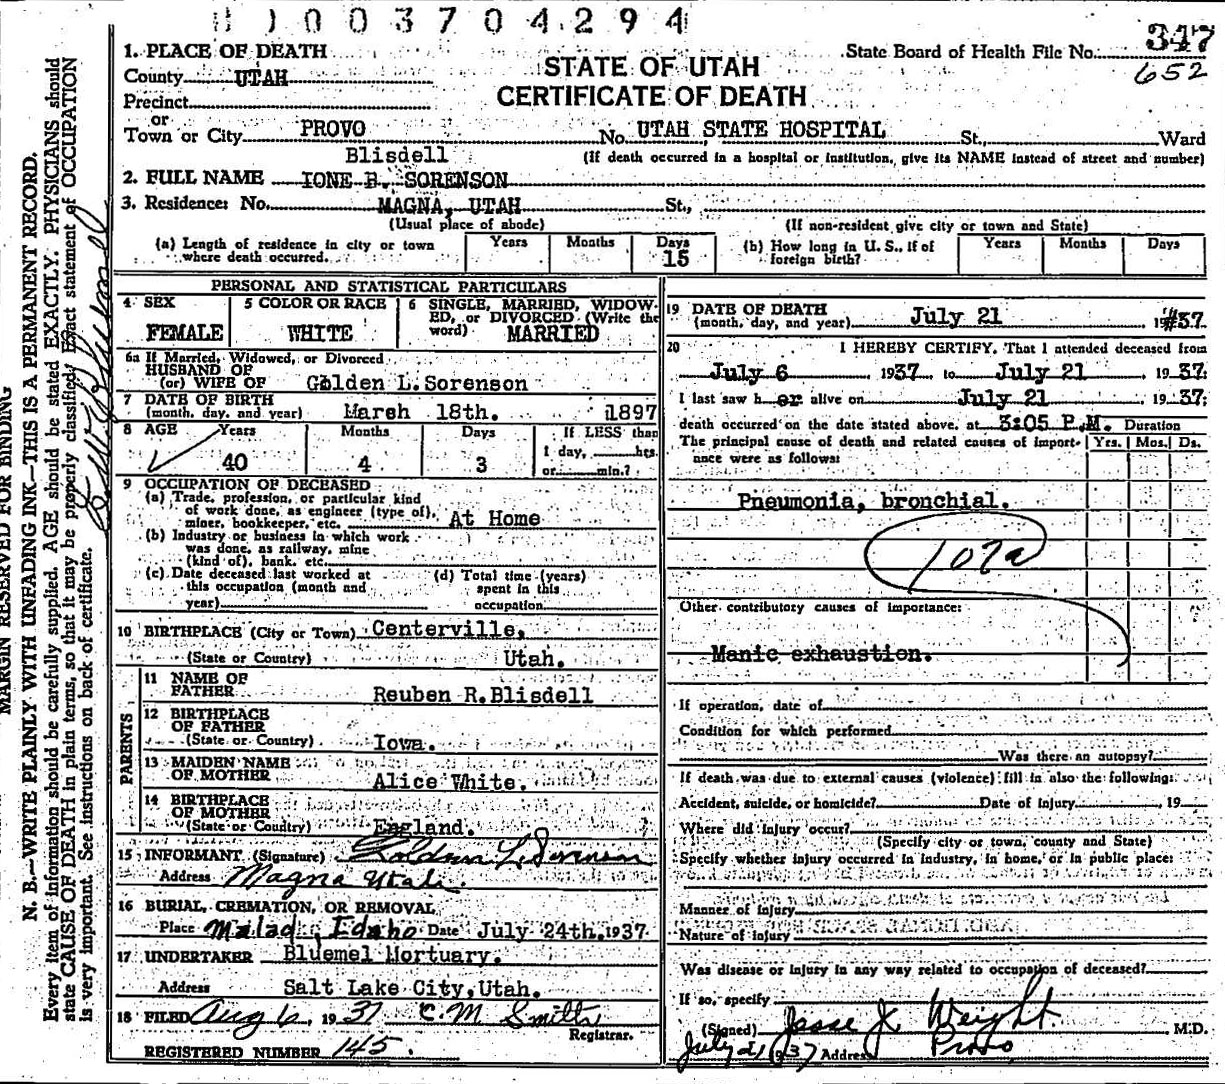 003704294
1. PLACE OF DEATH
State Board of Health File No. 347
652
County UTAH
STATE OF UTAH
CERTIFICATE OF DEATH
Precinct
or
Town or City PROVO No. UTAH STATE HOSPITAL St., Ward
(If death occurred in a hospital or institution, give its NAME instead of street and number)
Blisdell
2. FULL NAME IONE B. SORENSON
3. Residence: No. MAGNA, UTAH St.,
(Usual place of abode) (If non-resident give city or town and State)
(a) Length of residence in city or town where death occurred. Years Months Days 15
(b) How long in U. S., if of foreign birth? Years Months Days
PERSONAL AND STATISTICAL PARTICULARS
4 SEX FEMALE
5 COLOR OR RACE WHITE
6 SINGLE, MARRIED, WIDOWED, or DIVORCED (Write the word) MARRIED
6a If Married, Widowed, or Divorced
HUSBAND OF
(or) WIFE OF Golden L. Sorenson
7 DATE OF BIRTH
(month, day, and year) Marsh 18th. 1897
8 AGE Years Months Days If LESS than
1 day, hrs.
or min.?
40 4 3
9 OCCUPATION OF DECEASED
(a) Trade, profession, or particular kind
of work done, as engineer (type of),
miner, bookkeeper, etc. At Home
(b) Industry or business in which work
was done, as railway, mine
(kind of), bank, etc.
(c) Date deceased last worked at
this occupation (month and
year)
(d) Total time (years)
spent in this
occupation
10 BIRTHPLACE (City or Town) Centerville,
(State or Country) Utah.
PARENTS
11 NAME OF
FATHER Reuben R. Blisdell
12 BIRTHPLACE
OF FATHER
(State or Country) Iowa.
13 MAIDEN NAME
OF MOTHER Alice White.
14 BIRTHPLACE
OF MOTHER
(State or Country) England.
15 INFORMANT (Signature) Golden L. Sorenson
Address Magna Utah.
16 BURIAL, CREMATION, OR REMOVAL
Place Malad Idaho Date July 24th. 1937
17 UNDERTAKER Bluemel Mortuary.
Address Salt Lake City, Utah.
18 FILED Aug 6, 1937 C. M. Smith
Registrar.
REGISTERED NUMBER 145.
19 DATE OF DEATH
(month, day, and year) July 21, 1937
20 I HEREBY CERTIFY, That I attended deceased from
July 6 1937 to July 21, 1937.
I last saw her alive on July 21, 1937.
death occurred on the date stated above, at 3:05 P.M.
The principal cause of death and related causes of importance were as follows:
Duration
Yrs. Mos. Ds.
Pneumonia, bronchial.
107a
Other contributory causes of importance:
Manic exhaustion.
If operation, date of
Condition for which performed
Was there an autopsy?
If death was due to external causes (violence) fill in also the following:
Accident, suicide, or homicide? Date of injury , 19
Where did injury occur?
(Specify city or town, county and State)
Specify whether injury occurred in industry, in home, or in public place:
Manner of injury
Nature of injury
Was disease or injury in any way related to occupation of deceased?
If so, specify
(Signed) Jesse J. Weight M.D.
July 21, 1937 Address Provo
MARGIN RESERVED FOR BINDING
N. B.—WRITE PLAINLY WITH UNFADING INK—THIS IS A PERMANENT RECORD.
Every item of information should be carefully supplied. AGE should be stated EXACTLY. PHYSICIANS should
state CAUSE OF DEATH in plain terms, so that it may be properly classified. Exact statement of OCCUPATION
is very important. See instructions on back of certificate.